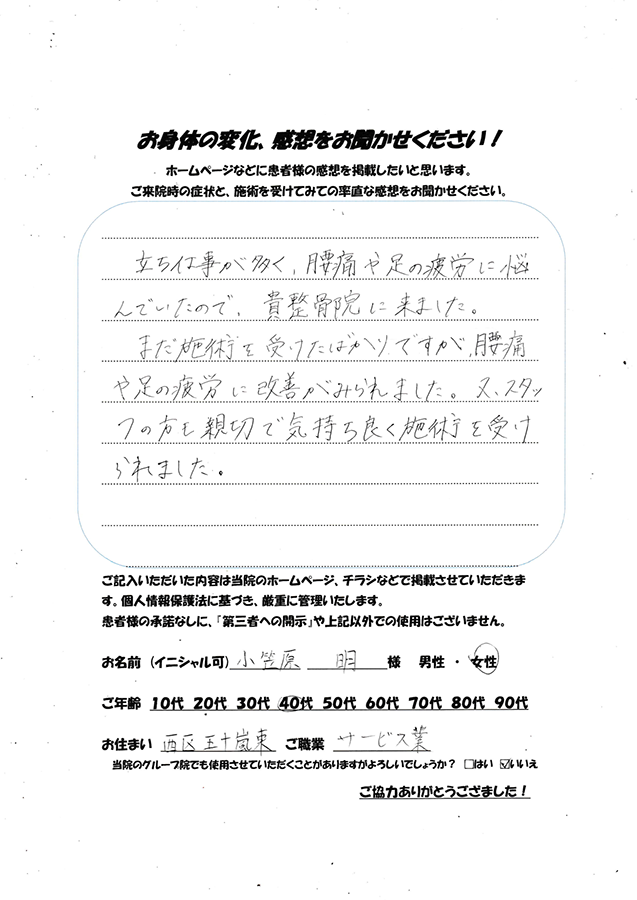 お身体の変化、感想をお聞かせください！
ホームページなどに患者様の感想を掲載したいと思います。
ご来院時の症状と、施術を受けてみての率直な感想をお聞かせください。
立ち仕事が多く、腰痛や足の疲労に悩
んでいたので、貴整骨院に来ました。
まだ施術を受けたばかりですが、腰痛
や足の疲労に改善がみられました。又、スタッ
フの方も親切で気持ち良く施術を受け
られました。
ご記入いただいた内容は当院のホームページ、チラシなどで掲載させていただきま
す。個人情報保護法に基づき、厳重に管理いたします。
患者様の承諾なしに、「第三者への開示」や上記以外での使用はございません。
お名前（イニシャル可）小笠原 明 様 男性・女性
ご年齢 10代 20代 30代 40代 50代 60代 70代 80代 90代
お住まい 西区五十嵐東 ご職業 サービス業
当院のグループ院でも使用させていただくことがありますがよろしいでしょうか？ □はい ☑いいえ
ご協力ありがとうござました！